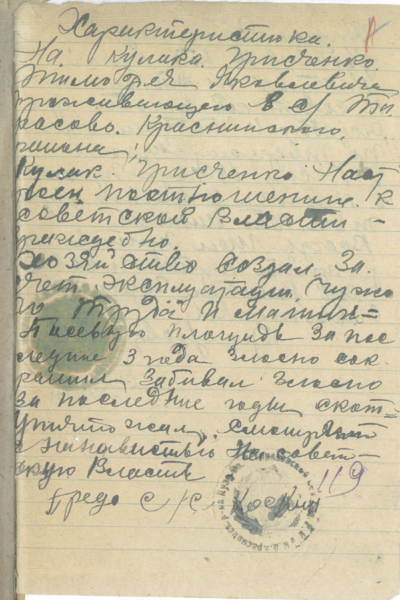 Характеристика.
На. Кулака. Гриченко
Тимофея Яковлевича
проживающего в с/ Та
расово. Краснинского.
района
Кулак. Гриченко. Наст
роен поотношению. к
советской Власти —
враждебно.
хозяйство создал За
счет эксплуатации чужо
го труда И машин=
Посевную площадь за пос
ледние 3 года злосно сок
ратил забивал злосно
за последние годы скот=
уничтожал. смотрит
с ненавистью На совет-
скую Власть
Предс с/с
119